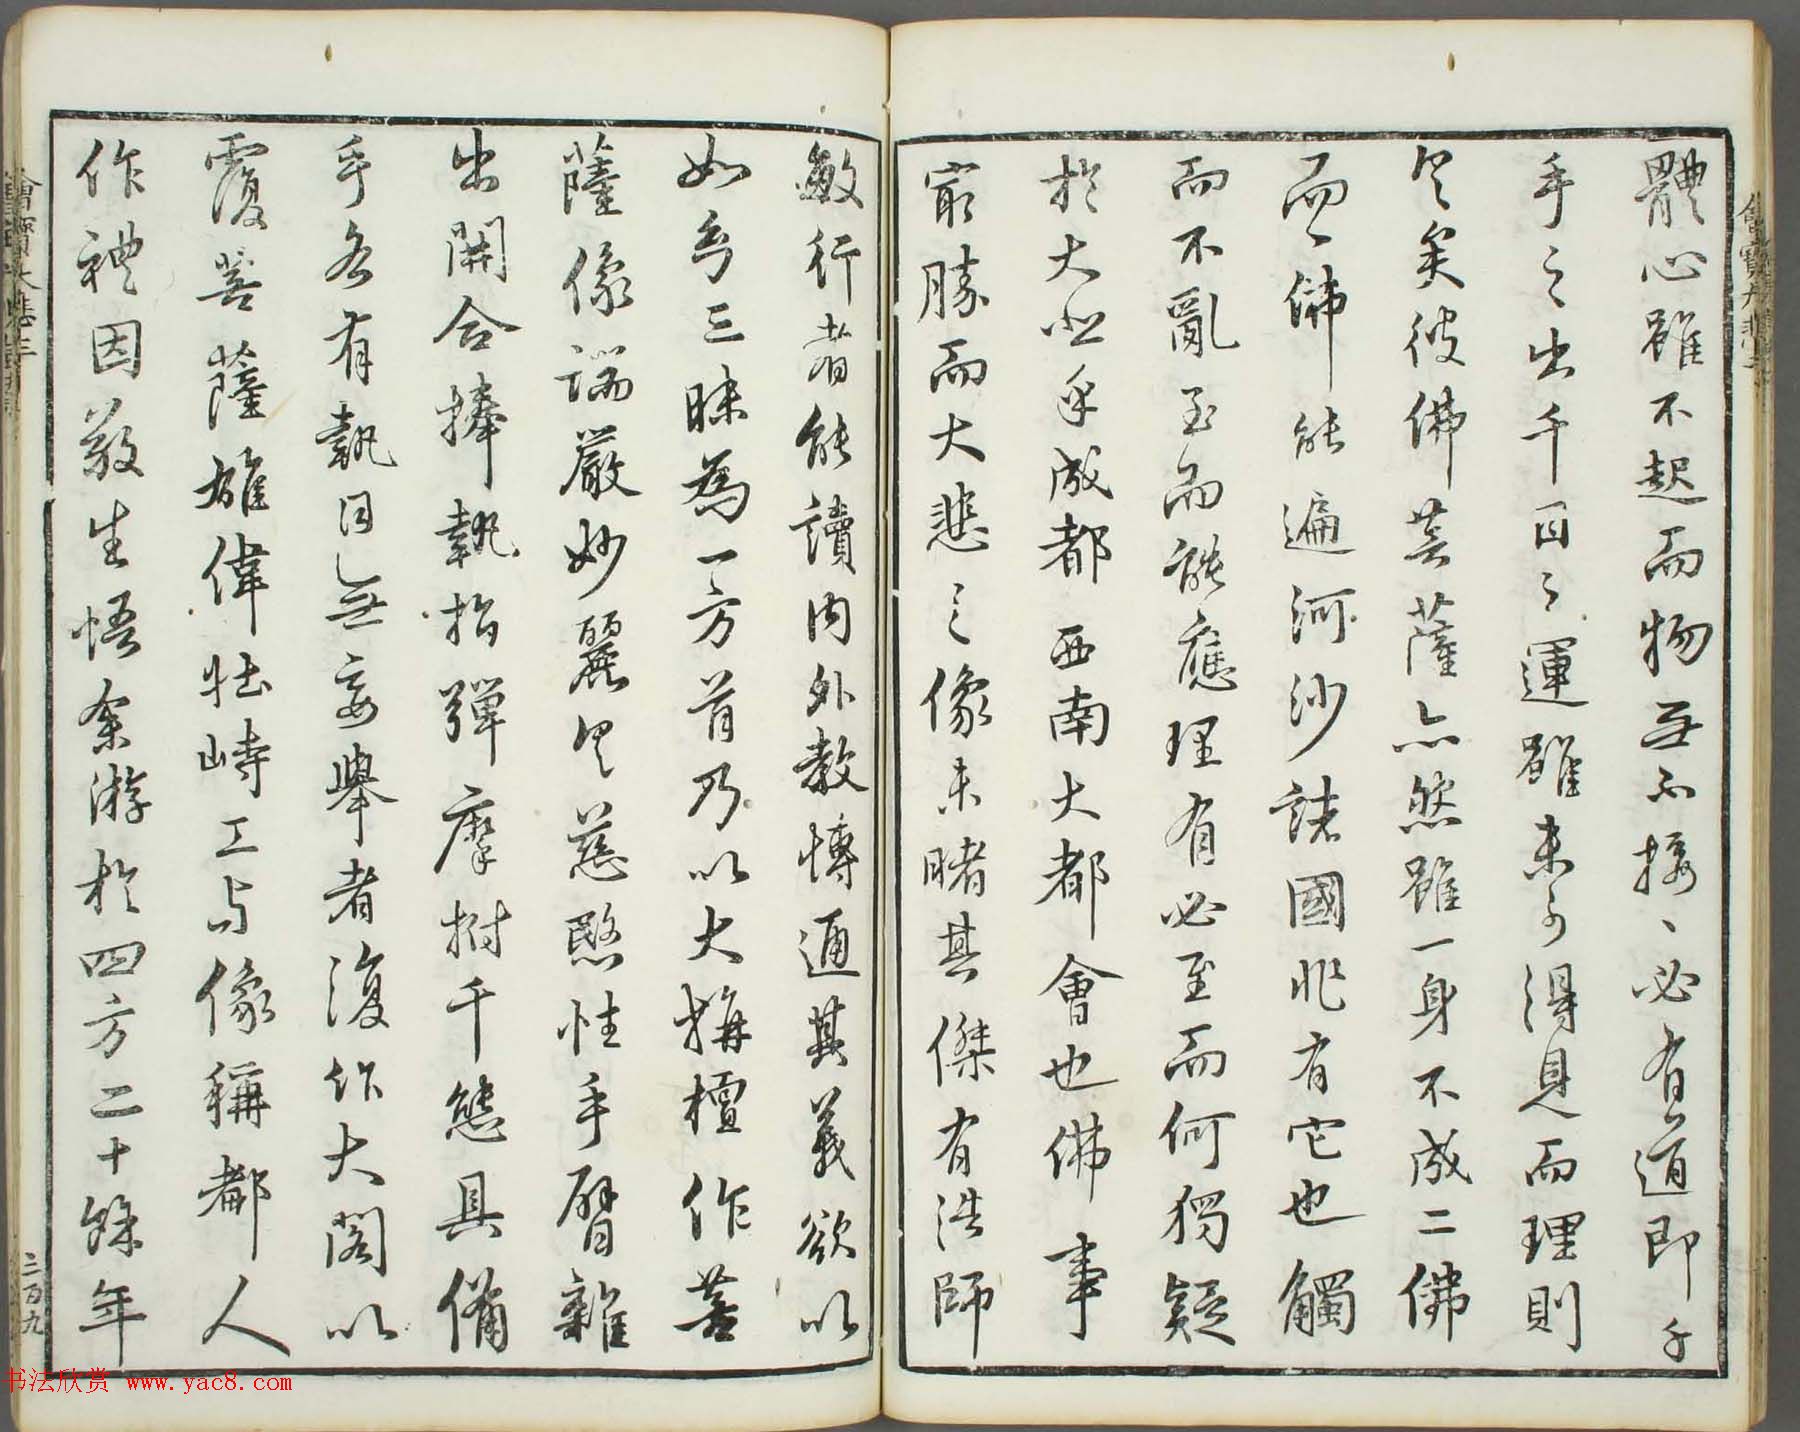 體心雖不起而物無不接〻必有道即千
手之出千目之運雖未可得見而理則
具矣彼佛菩薩亦然雖一身不成二佛
而一佛能遍河沙諸國非有它也觸
而不亂至而能應理有必至而何獨疑
於大悲乎成都西南大都會也佛事
最勝而大悲之像未睹其傑有法師
敏行者能讀内外教博通其義欲以
如幻三昧為一方首乃以大栴檀作菩
薩像端嚴妙麗具慈愍性手臂雜
出開合捧執指彈摩拊千態具備
手各有執目無妄舉者復作大閣以
覆菩薩雄偉壯峙工与像稱都人
作禮因敬生悟余游於四方二十餘年
三百九
书法欣赏 www.yac8.com